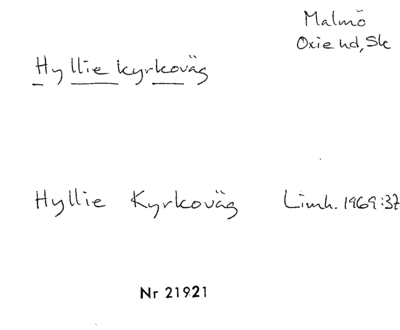 Malmö
Oxie hd, Sk
Hyllie kyrkoväg
Hyllie Kyrkoväg Limh. 1969:37
Nr 21921